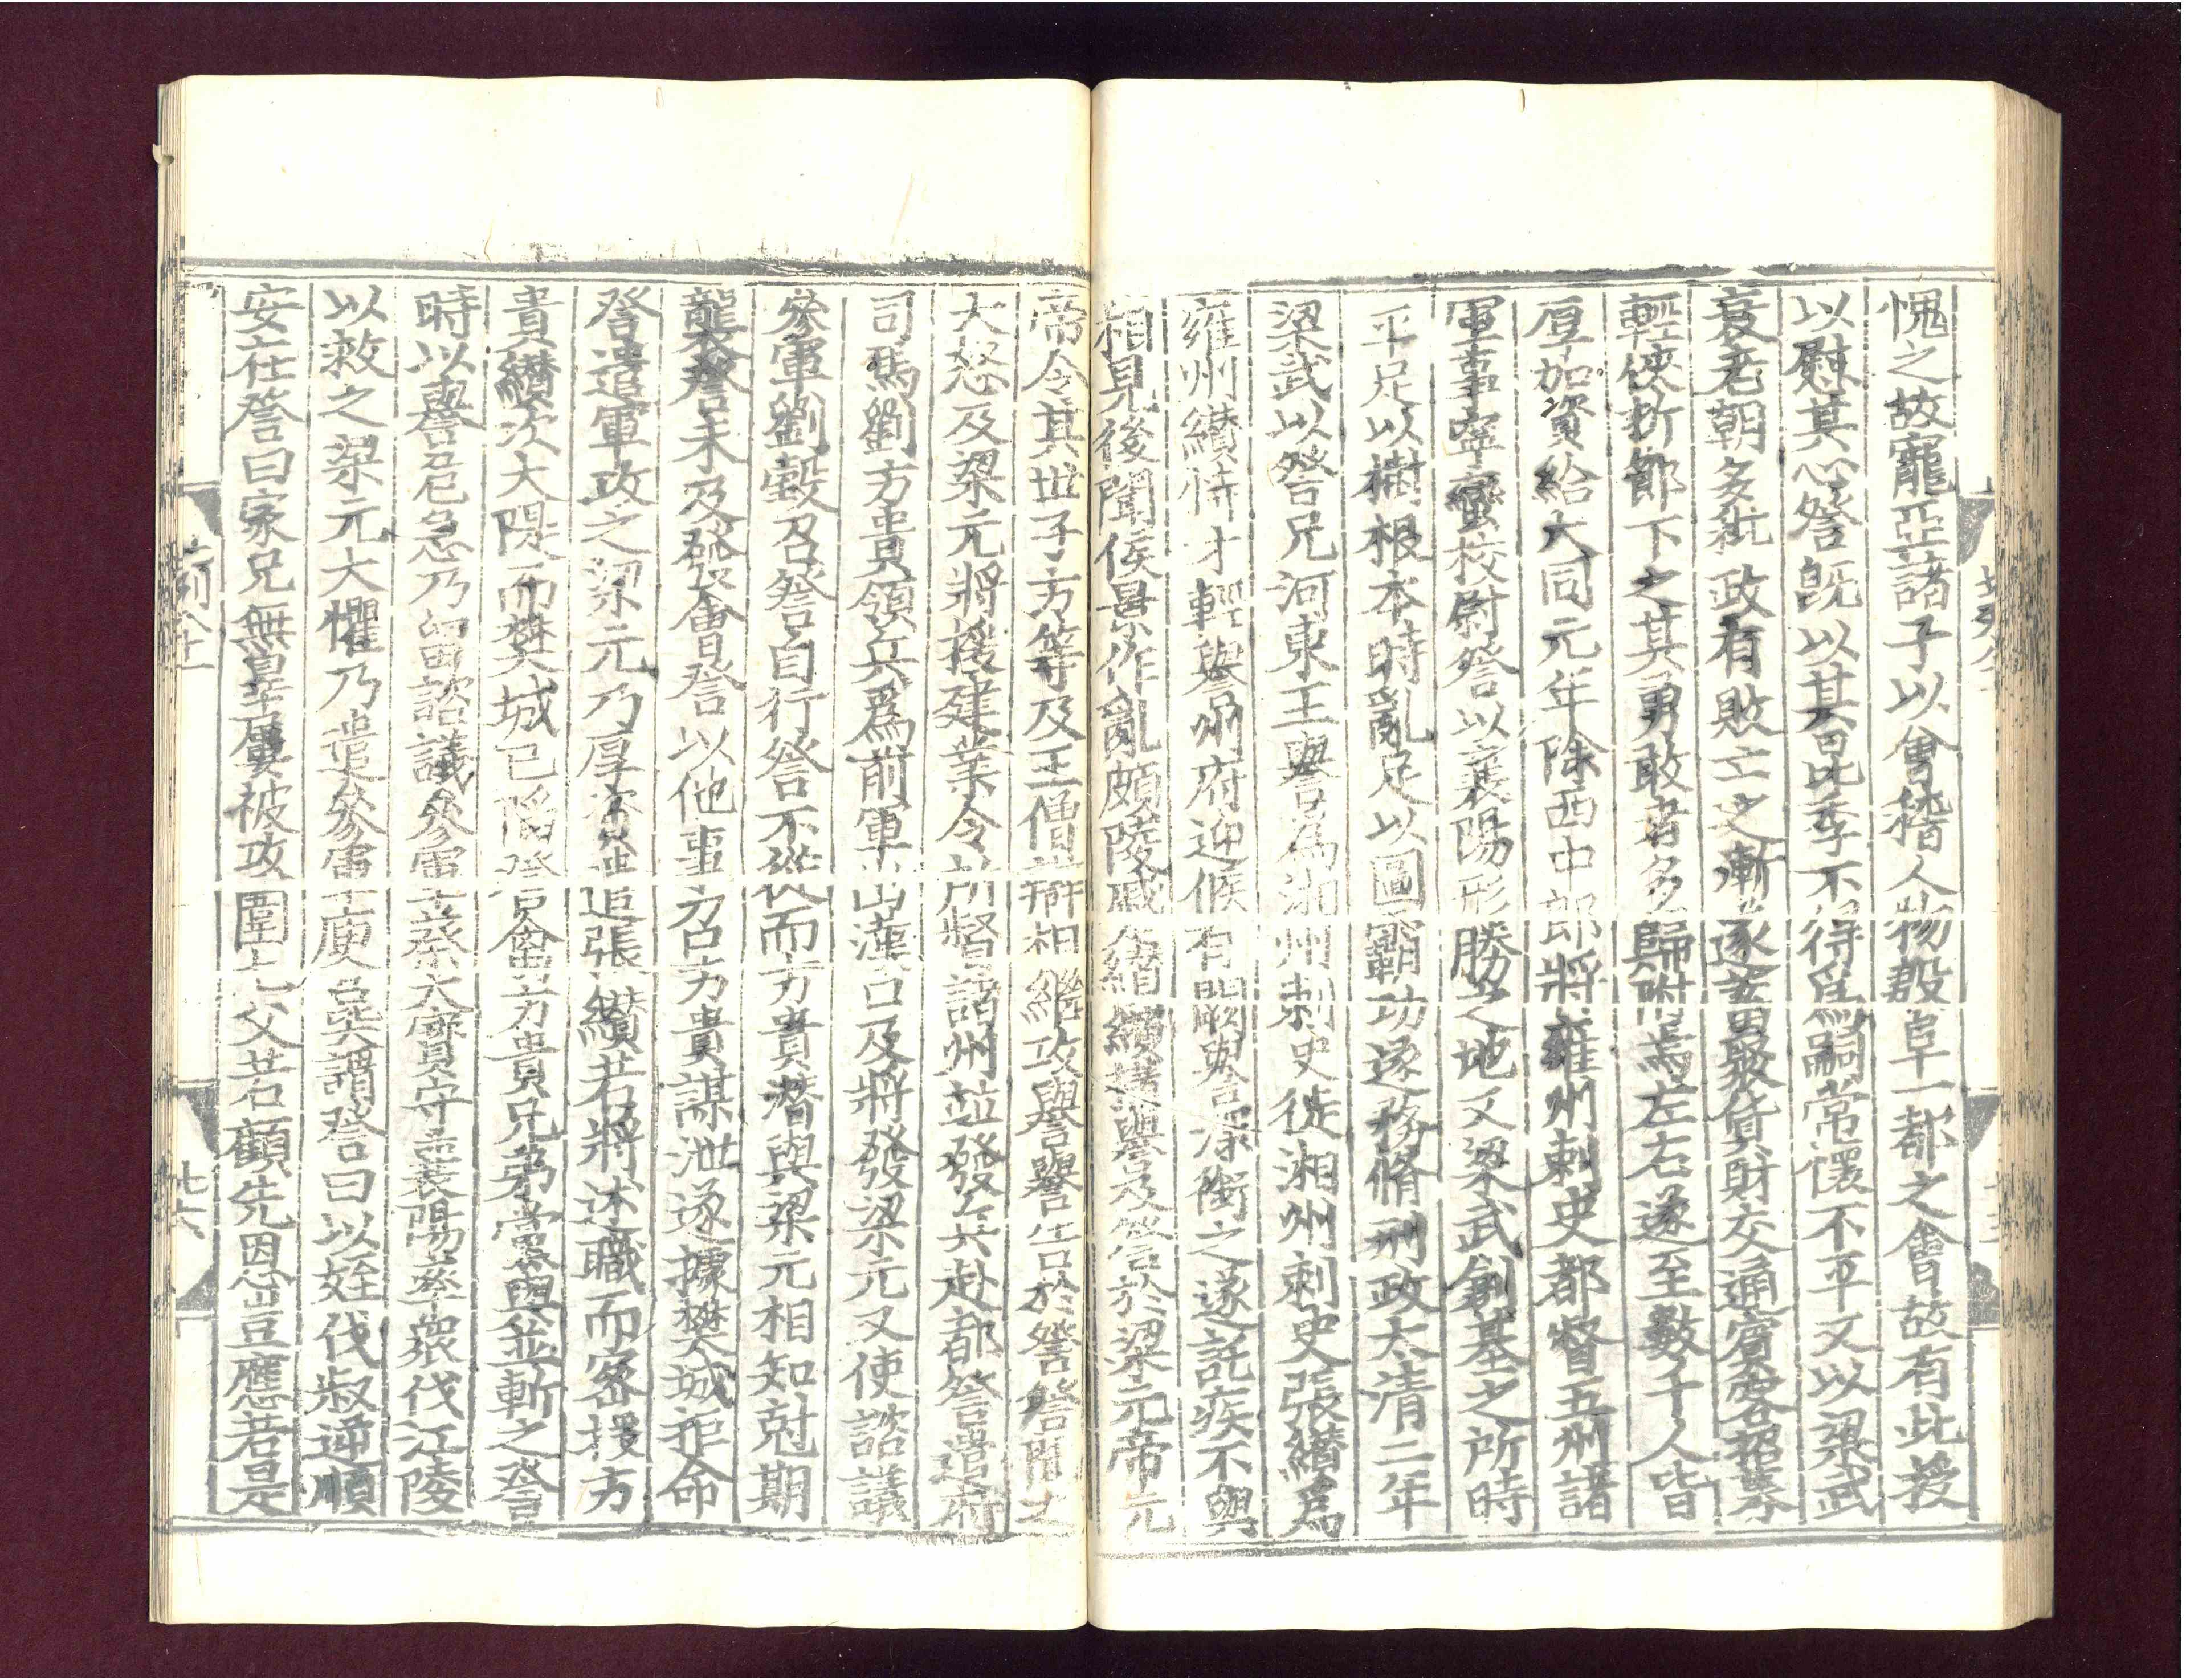 愧之故寵亞諸子以會稽人物殷阜一都之會故有此授
以慰其心詧旣以其昆季不得爲嗣常懷不平又以梁武
衰老朝多秕政有敗亡之漸遂蓄聚貨財交通賓客招募
輕俠折節下之其勇敢者多歸附焉左右遂至數千人皆
厚加資給大同元年除西中郎將雍州刺史都督五州諸
軍事寧蠻校尉詧以襄陽形勝之地又梁武創基之所時
平足以樹根本時亂足以圖霸功遂務脩刑政太清二年
梁武以詧兄河東王譽爲湘州刺史徙湘州刺史張纘爲
雍州纘恃才輕譽州府迎候有闕譽深銜之遂託疾不與
相見後聞侯景作亂頗陵蹙纘纘構譽及詧於梁元帝元
帝令其世子方等及王僧辯相繼攻譽譽告於詧詧聞之
大怒及梁元將援建業令所督諸州並發兵赴都詧遣府
司馬劉方貴領兵爲前軍出漢口及將發梁元又使諮議
參軍劉瑴召詧自行詧不從而方貴潛與梁元相知尅期
襲詧未及發會詧以他事召方貴方貴謀泄遂據樊城拒命
詧遣軍攻之梁元乃厚資遣張纘若將述職而密援方
貴纘次大隄而樊城已陷詧擒方貴兄弟黨與並斬之詧
時以譽危急乃留諮議參軍蔡大寶守襄陽率衆伐江陵
以救之梁元大懼乃遣參軍庾奐謂詧曰以姪伐叔逆順
安在詧曰家兄無辠屢被攻圍七父若顧先恩豈應若是
列八十一
廿六